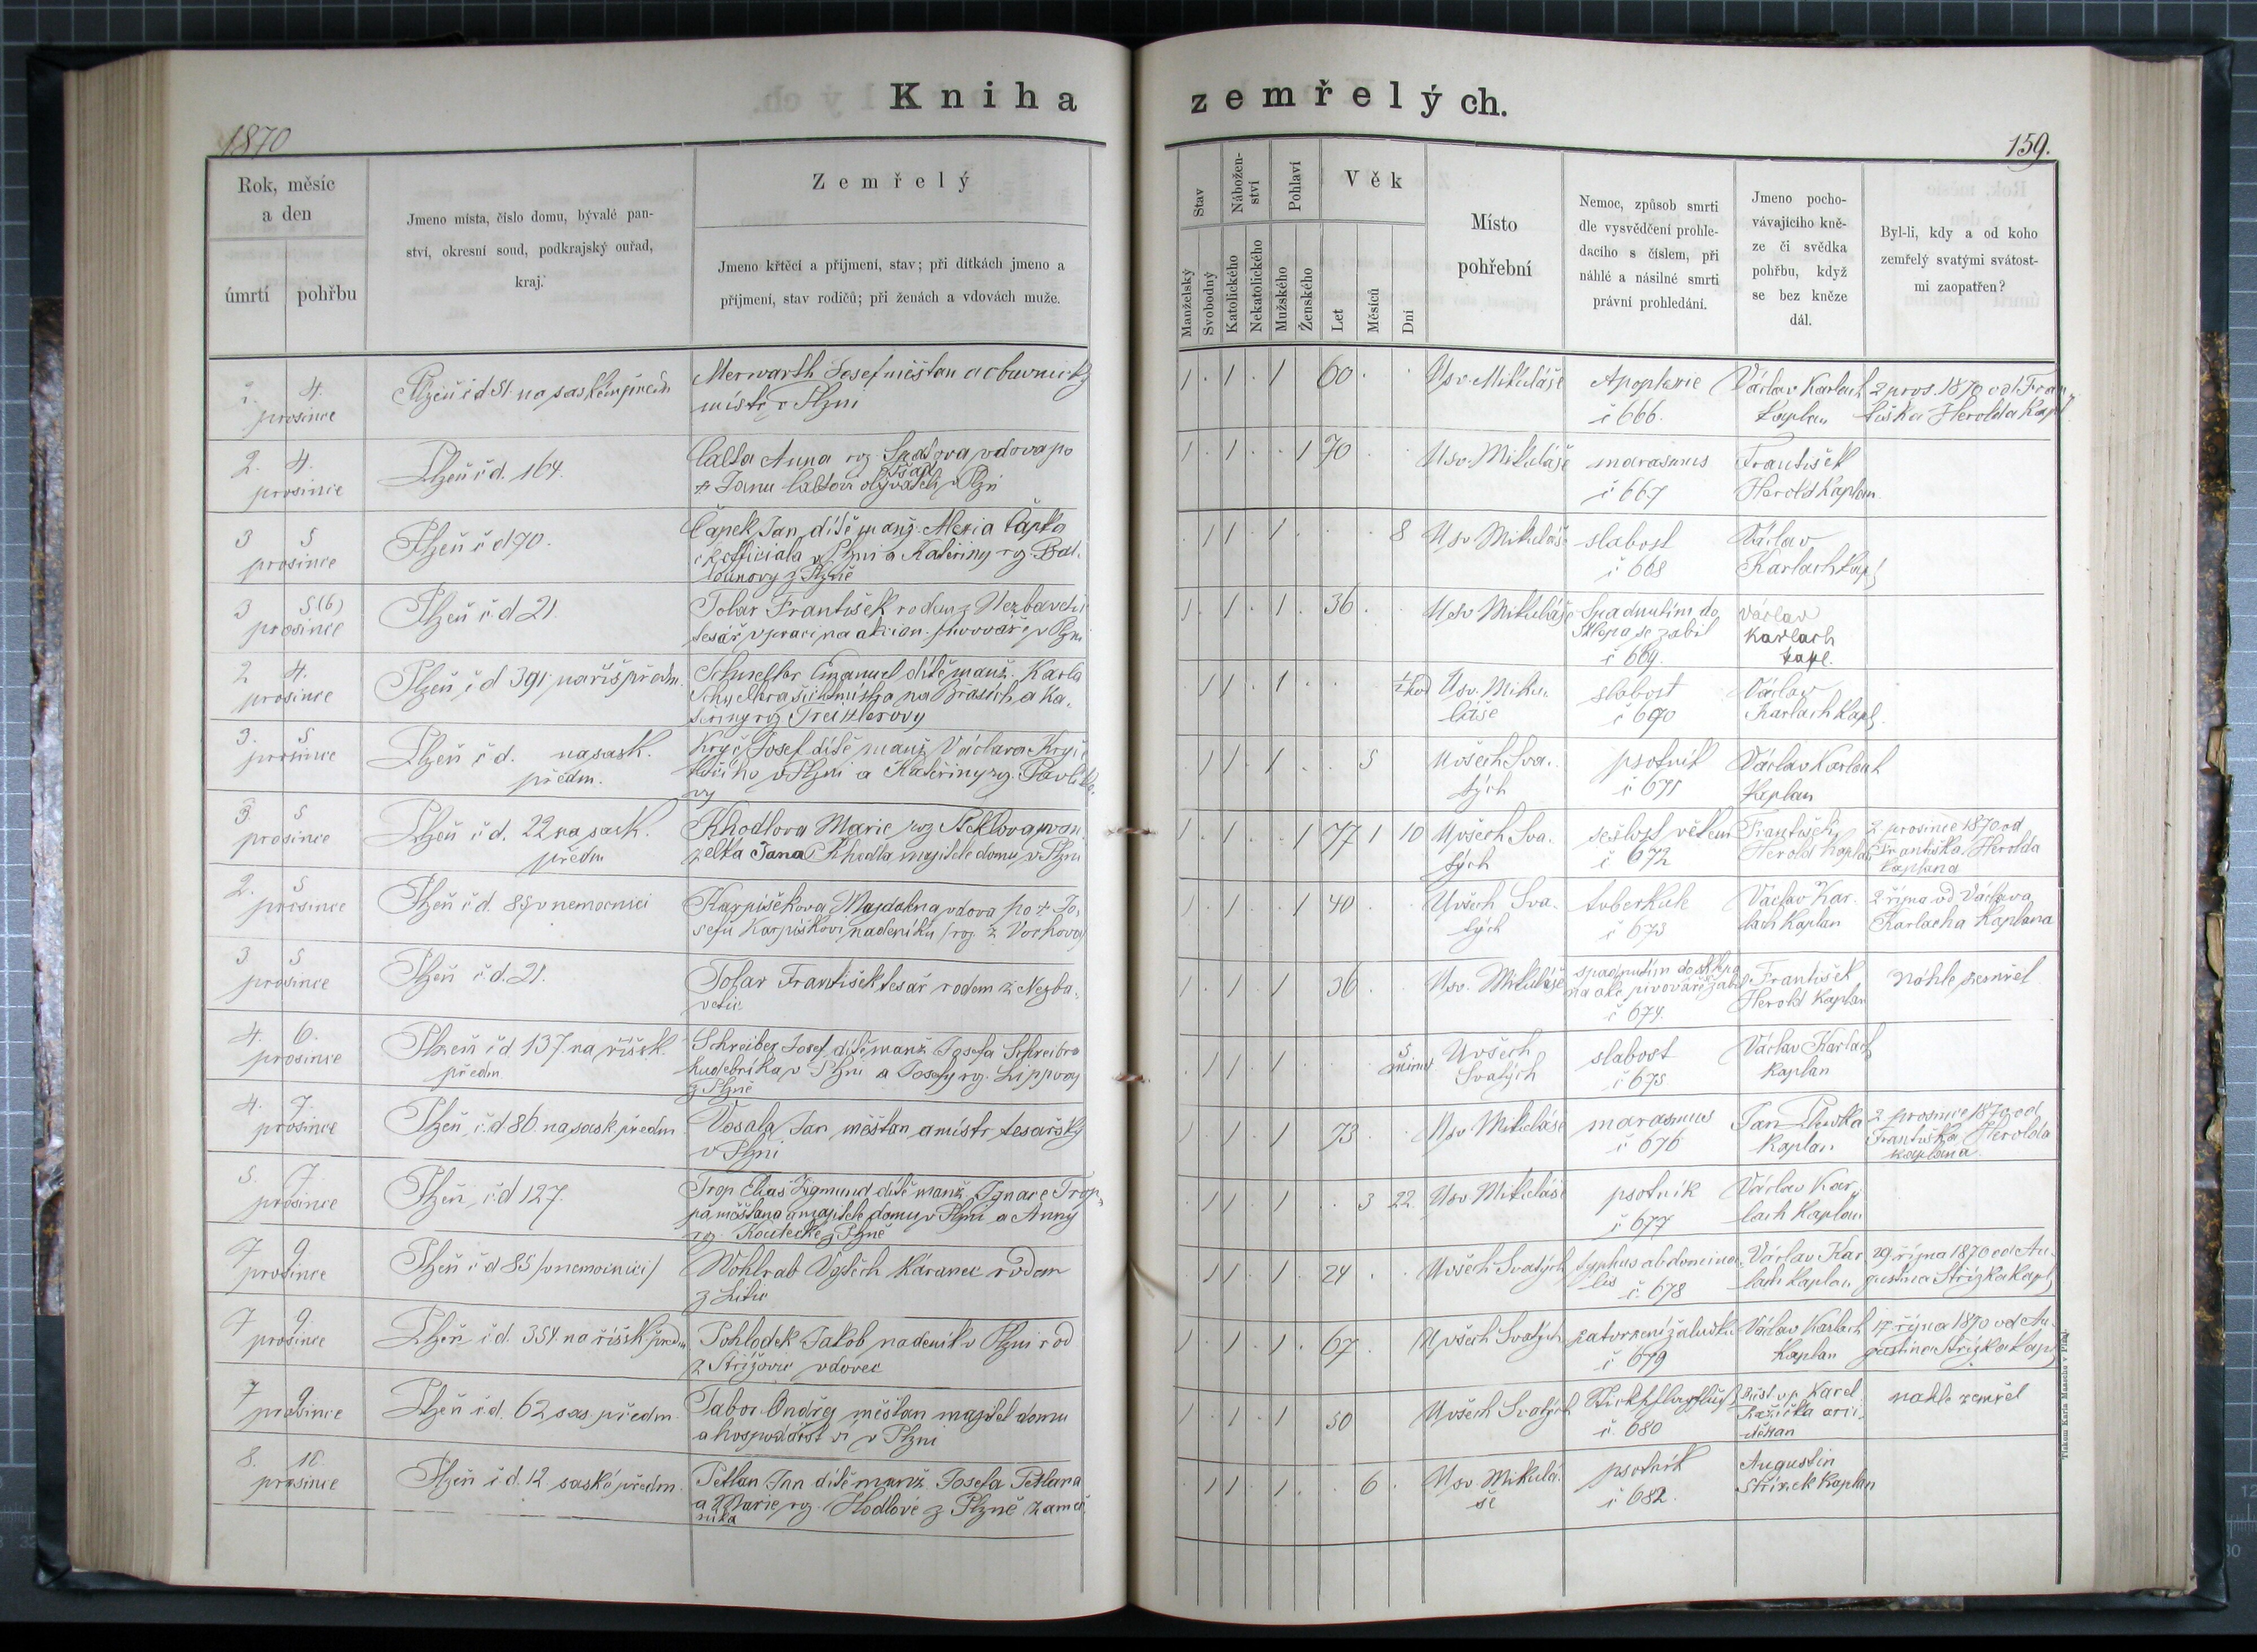 Kniha
zemřelých.
1870
159.
Rok, měsíc
a den
úmrtí
pohřbu
Jmeno místa, číslo domu, bývalé pan-
ství, okresní soud, podkrajský ouřad,
kraj.
Zemřelý
Jmeno křtěcí a příjmení, stav; při dítkách jmeno a
příjmení, stav rodičů; při ženách a vdovách muže.
Stav
Nábožen-
ství
Pohlaví
Věk
Manželský
Svobodný
Katolického
Nekatolického
Mužského
Ženského
Let
Měsíců
Dní
Místo
pohřební
Nemoc, způsob smrti
dle vysvědčení prohle-
dacího s číslem, při
náhlé a násilné smrti
právní prohledání.
Jmeno pocho-
vávajícího kně-
ze či svědka
pohřbu, když
se bez kněze
dál.
Byl-li, kdy a od koho
zemřelý svatými svátost-
mi zaopatřen?
4.
prosince
Plzeň čd 51 na saském předm
Merwarth Josef měštan a obuvnický
mistr v Plzni
1 . 1 . 1 60 . .
U sv. Mikuláše
Apoplexie
č 666.
Václav Karlach
Kaplan
2 pros. 1870 od Fran
tiška Herolda Kapl
2. 4.
prosince
Plzeň čd. 164.
Anna roz. vdova po
† Janu v Plzni
1 . 1 . . 1 70 . .
U sv. Mikuláše
marasmus
č 667
František
Herold Kaplan
3 5
prosince
Plzeň č d 170.
Čapek Jan dítě manž. Čapka
officiala v Plzni a Kateřiny roz. Bal-
z Plzně
. 1 1 . 1 . . . 8
U sv. Mikuláše
slabost
č 668
Václav
Karlach Kapl
3 5 (6)
prosince
Plzeň č. d 21.
Tolar František rodem z Nezbavetic
tesař v práci na akcion. pivováře v Plzni
1 . 1 . 1 . 36 . .
U sv. Mikuláše
Spadnutím do
sklepa se zabil
č 669.
Václav
Karlach
kapl.
2 4.
prosince
Plzeň č d 391 na říš předm.
Emanuel dítě manž. Karla
na a Ka-
teřiny roz.
. 1 1 . 1 . . . ½ hod
U sv. Miku-
láše
slabost
č 670
Václav
Karlach Kapl.
3. 5
prosince
Plzeň č d. na sask.
předm.
Josef dítě manž Václava
v Plzni a Kateřiny roz. Pavlíko-
vy
. 1 1 . 1 . . 5
U všech Sva-
tých
psotník
č 671
Václav Karlach
Kaplan
3 5
prosince
Plzeň č d. 22 na sask.
předm
Khodlova Marie roz. man-
želka Jana Khodla majitele domu v Plzni
1 . 1 . . 1 77 1 10
U všech Sva-
tých
sešlost věkem
č 672
František
Herold kaplan
2 prosince 1870 od
Františka Herolda
kaplana
2. 5
prosince
Plzeň č d. 85 v nemocnici
Karpíškova Magdalena vdova po † Jo-
sefu Karpíškovi nadeníku
1 . 1 . . 1 40 .
U všech Sva-
tých
tuberkule
č 673
Václav Kar-
lach Kaplan
2 října od Václava
Karlacha Kaplana
3. 5
prosince
Plzeň č. d. 21.
Tolar František tesař rodem z Nezba-
vetic
1 . 1 . 1 36 .
U sv. Mikuláše
spadnutím do sklepa
na akc pivováře zabil
č 674.
František
Herold Kaplan
náhle zemřel
4. 6.
prosince
Plzeň č d. 137. na říšsk.
předm
Schreiber Josef dítě manž Josefa Schreibra
hudebníka v Plzni a roz.
z Plzně
. 1 1 . 1 5
minut
U všech
Svatých
slabost
č 675
Václav Karlach
Kaplan
4. 7.
prosince
Plzeň č. d 86. na sask předm
Vosala Jan měštan a mistr tesařský
v Plzni
1 . 1 . 1 73 . .
U sv. Mikuláše
marasmus
č 676
Jan
Kaplan
2 prosince 1870 od
Františka Herolda
kaplana.
5. 7.
prosince
Plzeň č. d 127.
Trop Elias Zigmund dítě manž. Ignace Trop-
pa měštana a majitele domu v Plzni a Anny
roz. z Plzně
. 1 1 . 1 . . 3 22.
U sv. Mikuláše
psotník
č 677
Václav Kar-
lach Kaplan
7 9
prosince
Plzeň č d 85 /v nemocnici/
Wohlrab Vojtěch rodem
z
. 1 1 . 1 . 24 . .
U všech Svatých
typhus abdomina-
lis č. 678
Václav Kar
lach Kaplan
29. října 1870 od Au-
gustina Střízka Kapl
7 9
prosince
Plzeň č d. 354. na říšsk předm
Pohlodek Jakob nadeník v Plzni rod
z vdovec
1 . 1 . 1 . 67 .
U všech Svatých
zatvrzení žaludku
č 679
Václav Karlach
Kaplan
17. října 1870 od Au-
gustina Střízka Kapl
7 9
prosince
Plzeň č d. 62 sas. předm.
Tabor Ondřej měštan majitel domu
a hospodářství v Plzni
1 . 1 . 1 50
U všech Svatých
č. 680
Karel
Růžička arci-
děkan
náhle zemřel
8. 10.
prosince
Plzeň č d. 12 saské předm.
Petlan Jan dítě manž. Josefa Petlana
a Marie roz. Hodlové z Plzně zameč
níka
. 1 1 . 1 . . 6 .
U sv. Mikulá-
še
psotník
č 682.
Augustin
Střízek Kaplan
Tiskem Karla Maasche v Plzni.